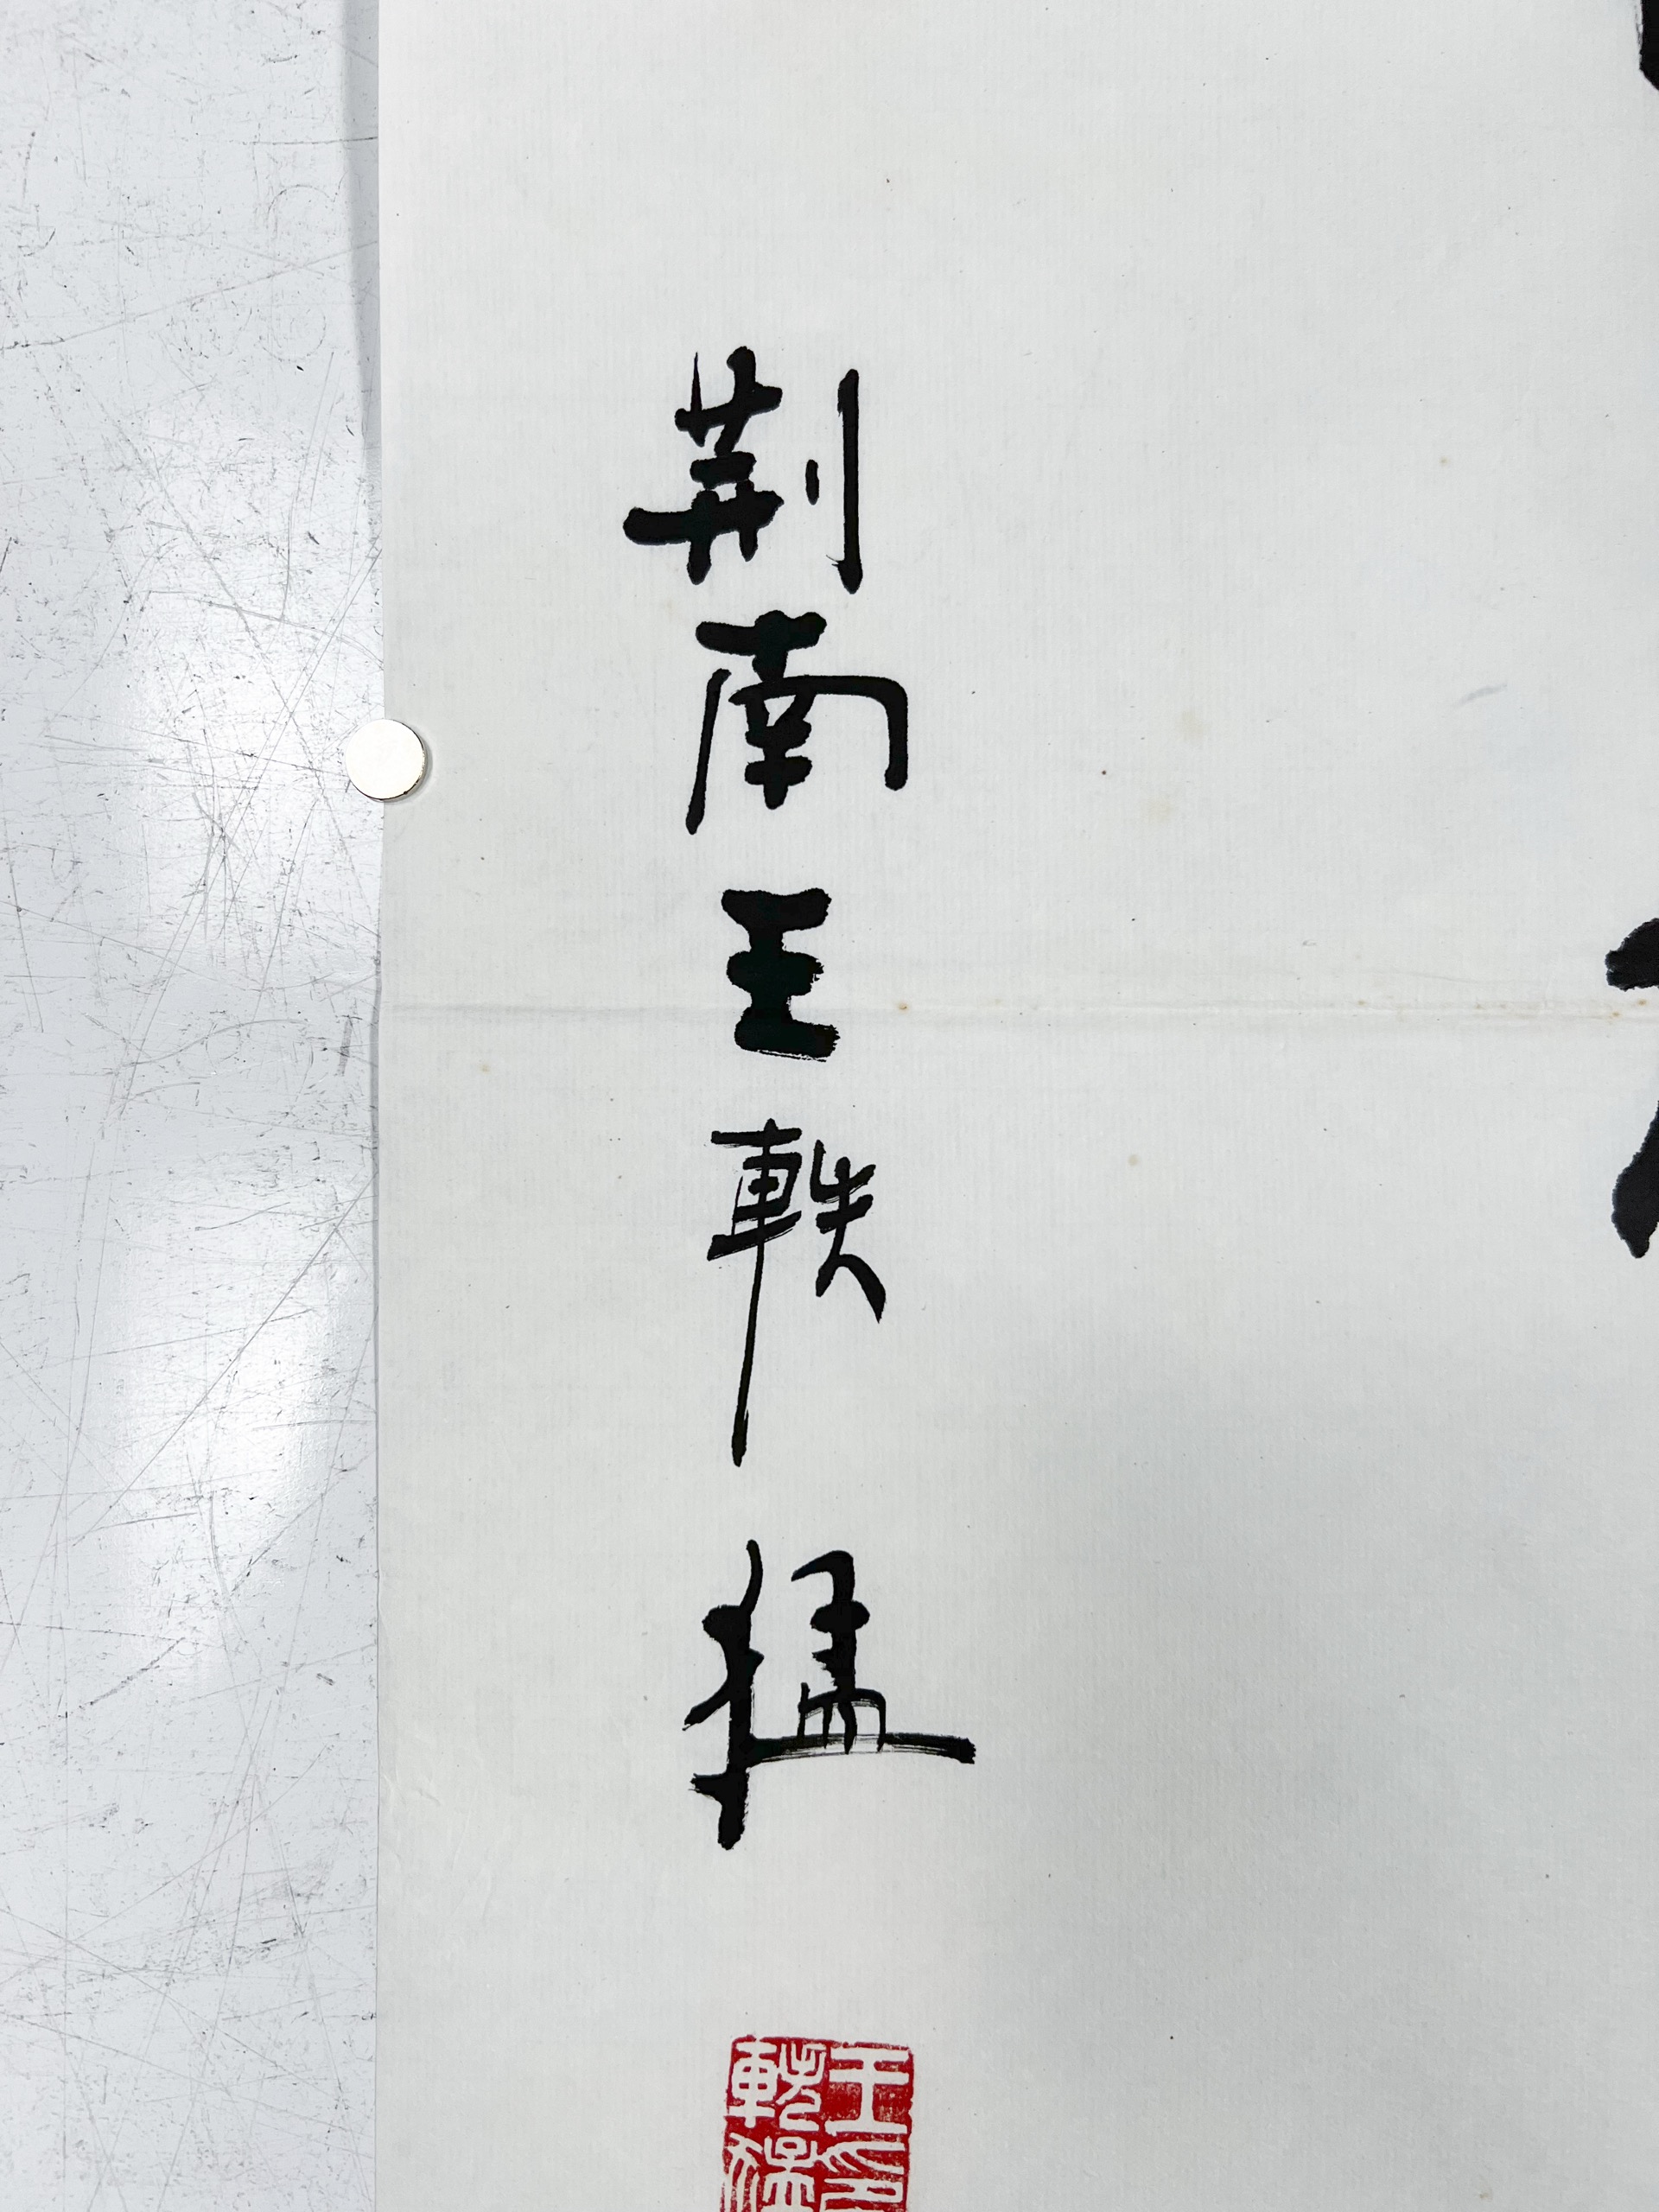 荆南王軼猛
王印
軼猛